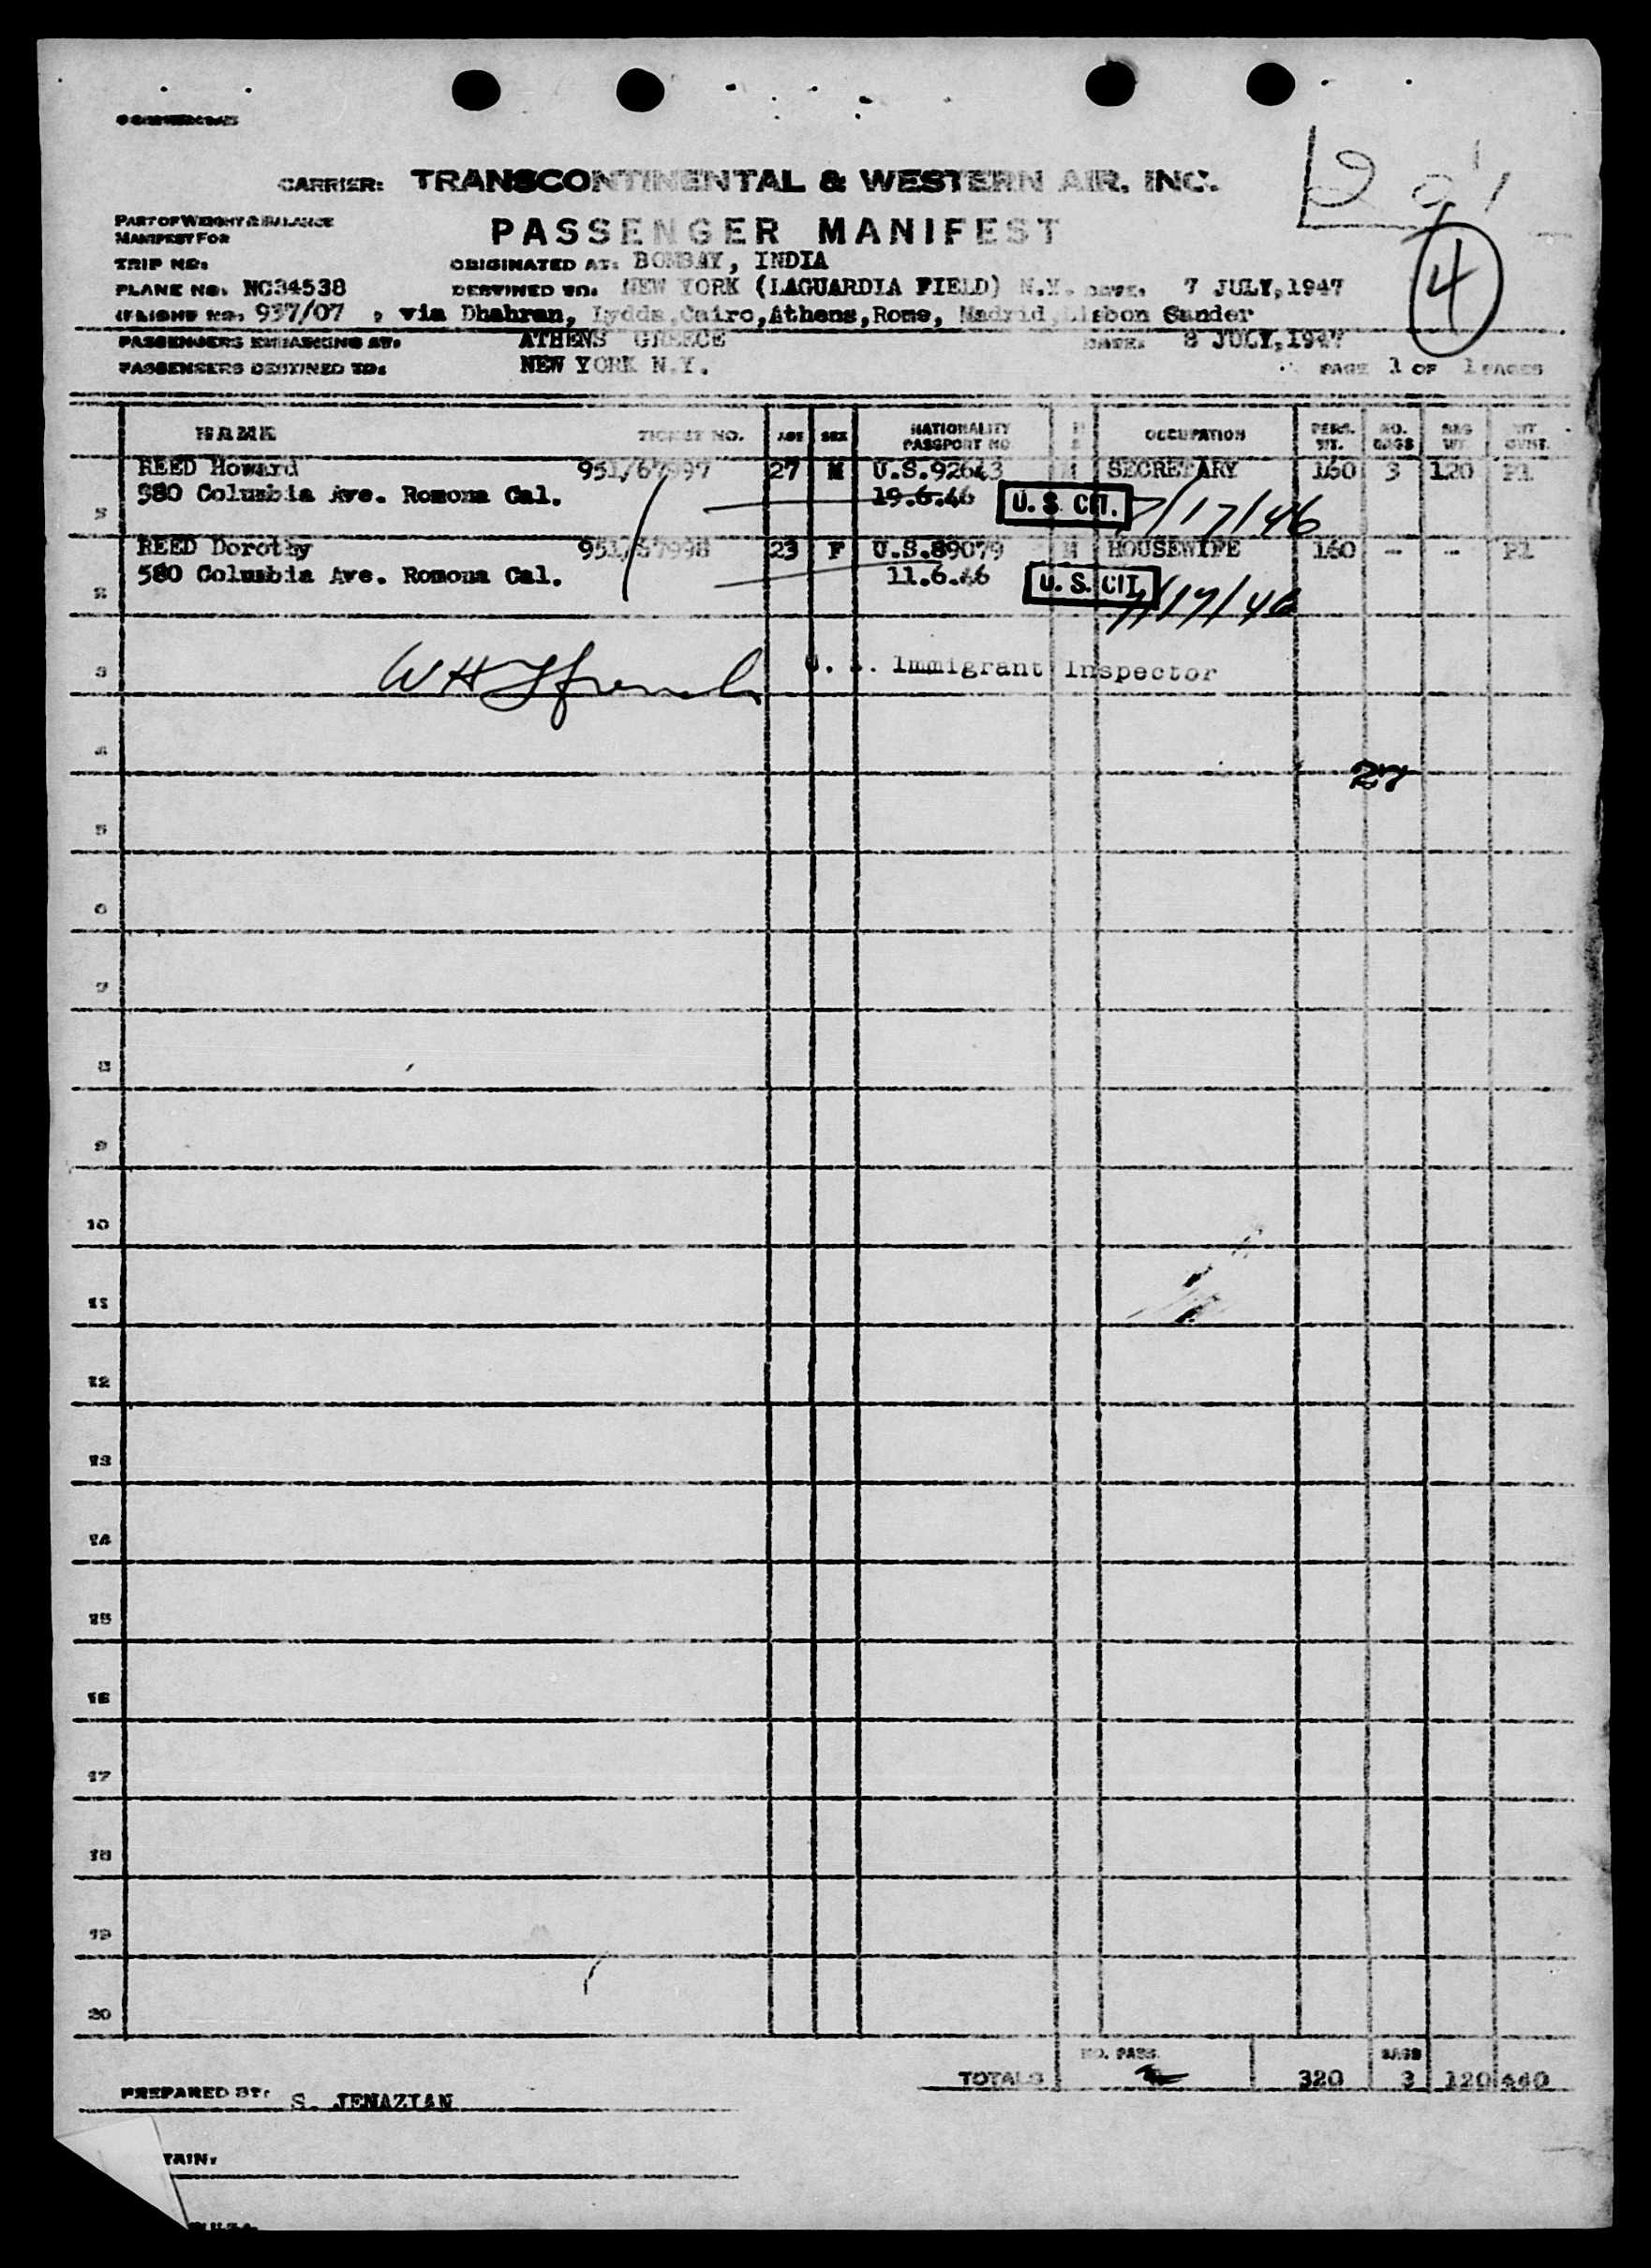 CARRIER: TRANSCONTINENTAL & WESTERN AIR, INC.
PART OF WEIGHT & BALANCE
MANIFEST FOR
PASSENGER MANIFEST
TRIP NO:
ORIGINATED AT: BOMBAY, INDIA
PLANE NO: NC34538
DESTINED TO: NEW YORK (LAGUARDIA FIELD) N.Y. DATE: 7 JULY,1947
FLIGHT NO: 957/07 , via Dhahran, Lydda,Cairo,Athens,Rome, Madrid,Lisbon Gander
4
PASSENGERS EMBARKING AT: ATHENS GREECE DATE: 8 JULY,1947
PASSENGERS DESTINED TO: NEW YORK N.Y. PAGE 1 OF 1 PAGES
NAME TICKET NO. AGE SEX NATIONALITY PASSPORT NO OCCUPATION PERS. WT. NO. BAGS BAG WT.
REED Howard 951/67997 27 M U.S.92643 M SECRETARY 160 3 120
580 Columbia Ave. Romona Cal. 19.6.46 U.S. CIT. 7/17/46
REED Dorothy 951/67998 23 F U.S.89079 M HOUSEWIFE 160 - -
2 580 Columbia Ave. Romona Cal. 11.6.46 U.S. CIT. 7/17/46
3 U. S. Immigrant Inspector
4
27
5
6
7
8
9
10
11
12
13
14
15
16
17
18
19
20
NO. PASS. BAGS
TOTALS 320 3 120 440
PREPARED BY: S. JENAZIAN
TAIN: